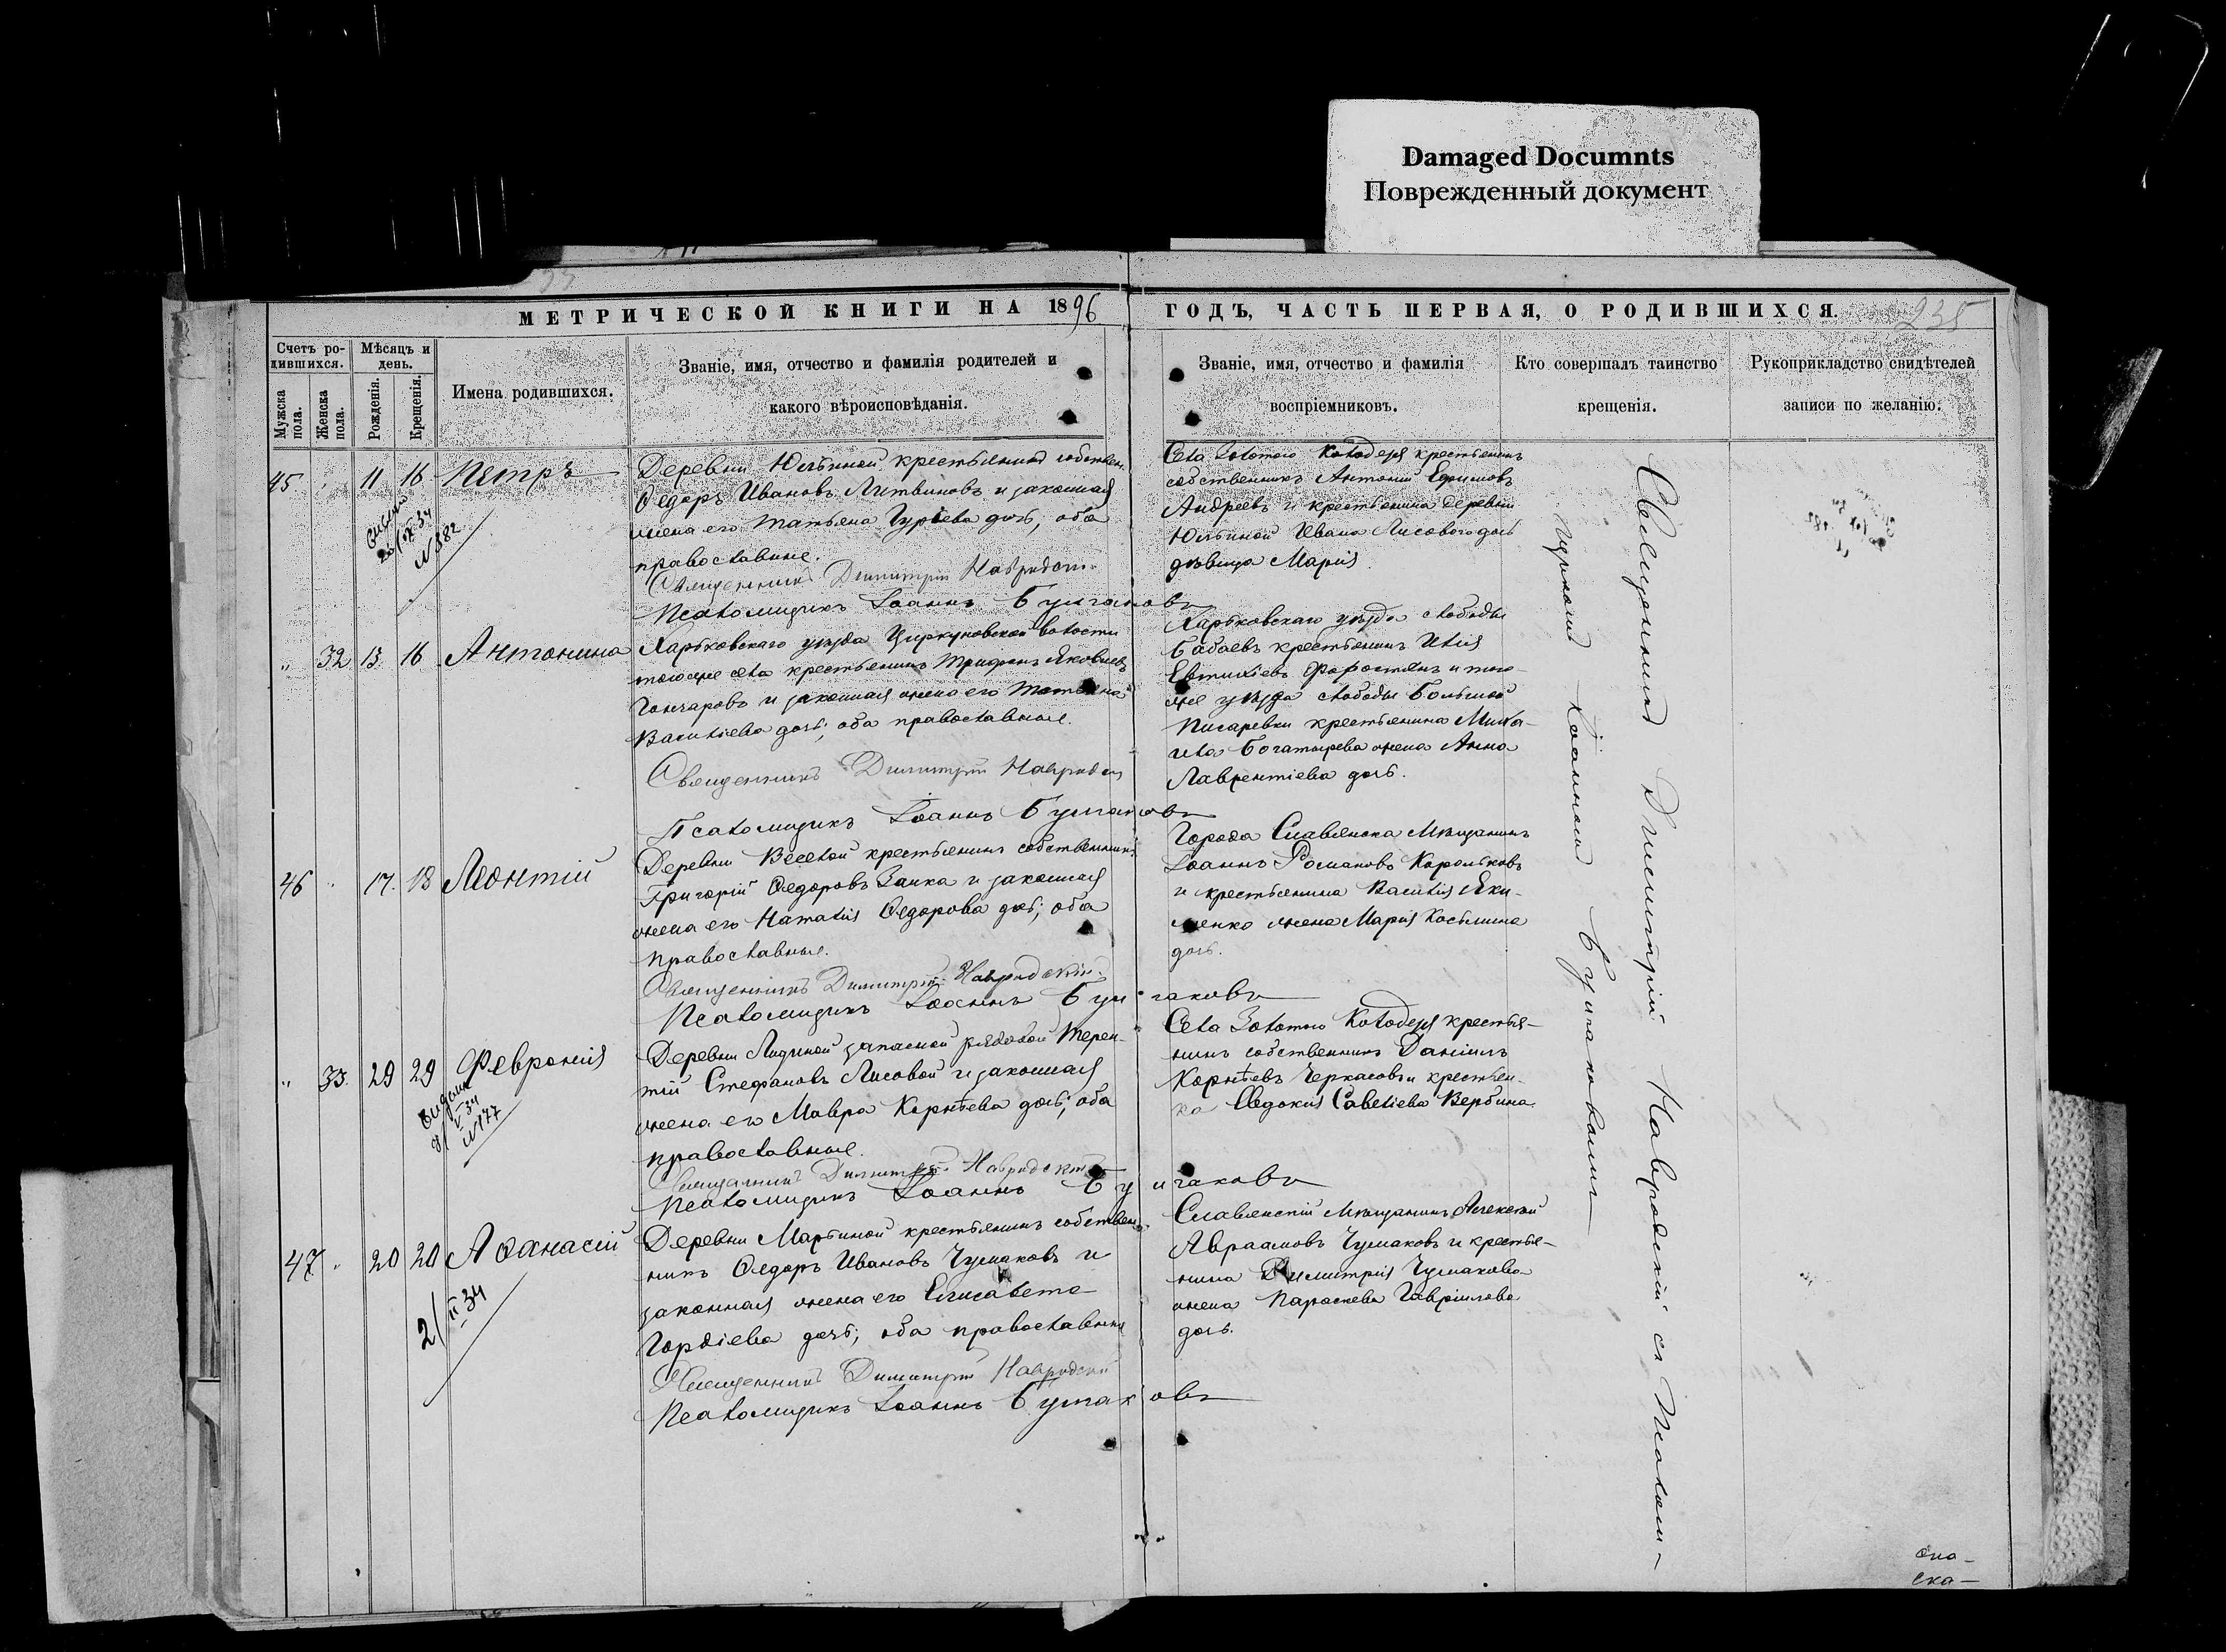 Damaged Documnts
Поврежденный документ
МЕТРИЧЕСКОЙ КНИГИ НА 1896
ГОДЪ, ЧАСТЬ ПЕРВАЯ, О РОДИВШИХСЯ.
235
Счетъ ро-
дившихся.
Мужска
пола.
Женска
пола.
Мѣсяцъ и
день.
Рожденія.
Крещенія.
Имена родившихся.
Званіе, имя, отчество и фамилія родителей и
какого вѣроисповѣданія.
Званіе, имя, отчество и фамилія
воспріемниковъ.
Кто совершалъ таинство
крещенія.
Рукоприкладство свидѣтелей
записи по желанію.
45 " 11 16 Петръ
Деревни крестьянинъ собствен.
Ѳедоръ Ивановъ Литвиновъ и законная
жена его Татьяна Гурьева дочь, оба
православные.
Священникъ Димитрій Навродскій
Псаломщикъ Іоаннъ Булгаковъ
Села Золотого Колодезя крестьянинъ
собственникъ Антоній Ефимовъ
Андреевъ и крестьянина деревни
Ивана Лисового дочь
дѣвица Марія.
20/IX 34
N 882
" 32 13 16 Антонина
Харьковскаго уѣзда Циркуновской волости
того же села крестьянинъ Трифонъ Яковлевъ
Гончаровъ и законная жена его Татьяна
Василіева дочь; оба православные.
Священникъ Димитрій Навродскій
Псаломщикъ Іоаннъ Булгаковъ
Харьковскаго уѣзда слободы
Бабаевъ крестьянинъ Илія
Евтихіевъ и того-
же уѣзда слободы Большой
Писаревки крестьянина Миха-
ила Богатырева жена Анна
Лаврентіева дочь.
46 " 17. 18 Леонтій
Деревни Веселой крестьянинъ собственникъ
Григорій Ѳедоровъ Заика и законная
жена его Наталія Ѳедорова дочь; оба
православные.
Священникъ Димитрій Навродскій
Псаломщикъ Іоаннъ Булгаковъ
Города Славянска Мѣщанинъ
Іоаннъ Романовъ Корольковъ
и крестьянина Василія Яки-
менко жена Марія Косьмина
дочь.
" 33. 29 29 Февронія
Деревни запасной рядовой Терен-
тій Стефановъ Лисовой и законная
жена его Мавра Корнѣева дочь; оба
православные.
Священникъ Димитрій Навродскій
Псаломщикъ Іоаннъ Булгаковъ
Села Золотого Колодезя крестья-
нинъ собственникъ Даніилъ
Корнѣевъ Черкасовъ и крестьян-
ка Евдокія Савеліева Вербина.
N 177
47 " 20 20 Аѳанасій
Деревни Марьиной крестьянинъ собствен-
никъ Ѳедоръ Ивановъ Чумаковъ и
законная жена его Елисавета
Гордіева дочь; оба православные
Священникъ Димитрій Навродскій
Псаломщикъ Іоаннъ Булгаковъ
Славянскій Мѣщанинъ Алексѣй
Авраамовъ Чумаковъ и крестья-
нина Димитрія Чумакова
жена Параскева Гавріилова
дочь.
2/II 34
Священникъ Димитрій Навродскій съ Псалом-
щикомъ Іоанномъ Булгаковымъ